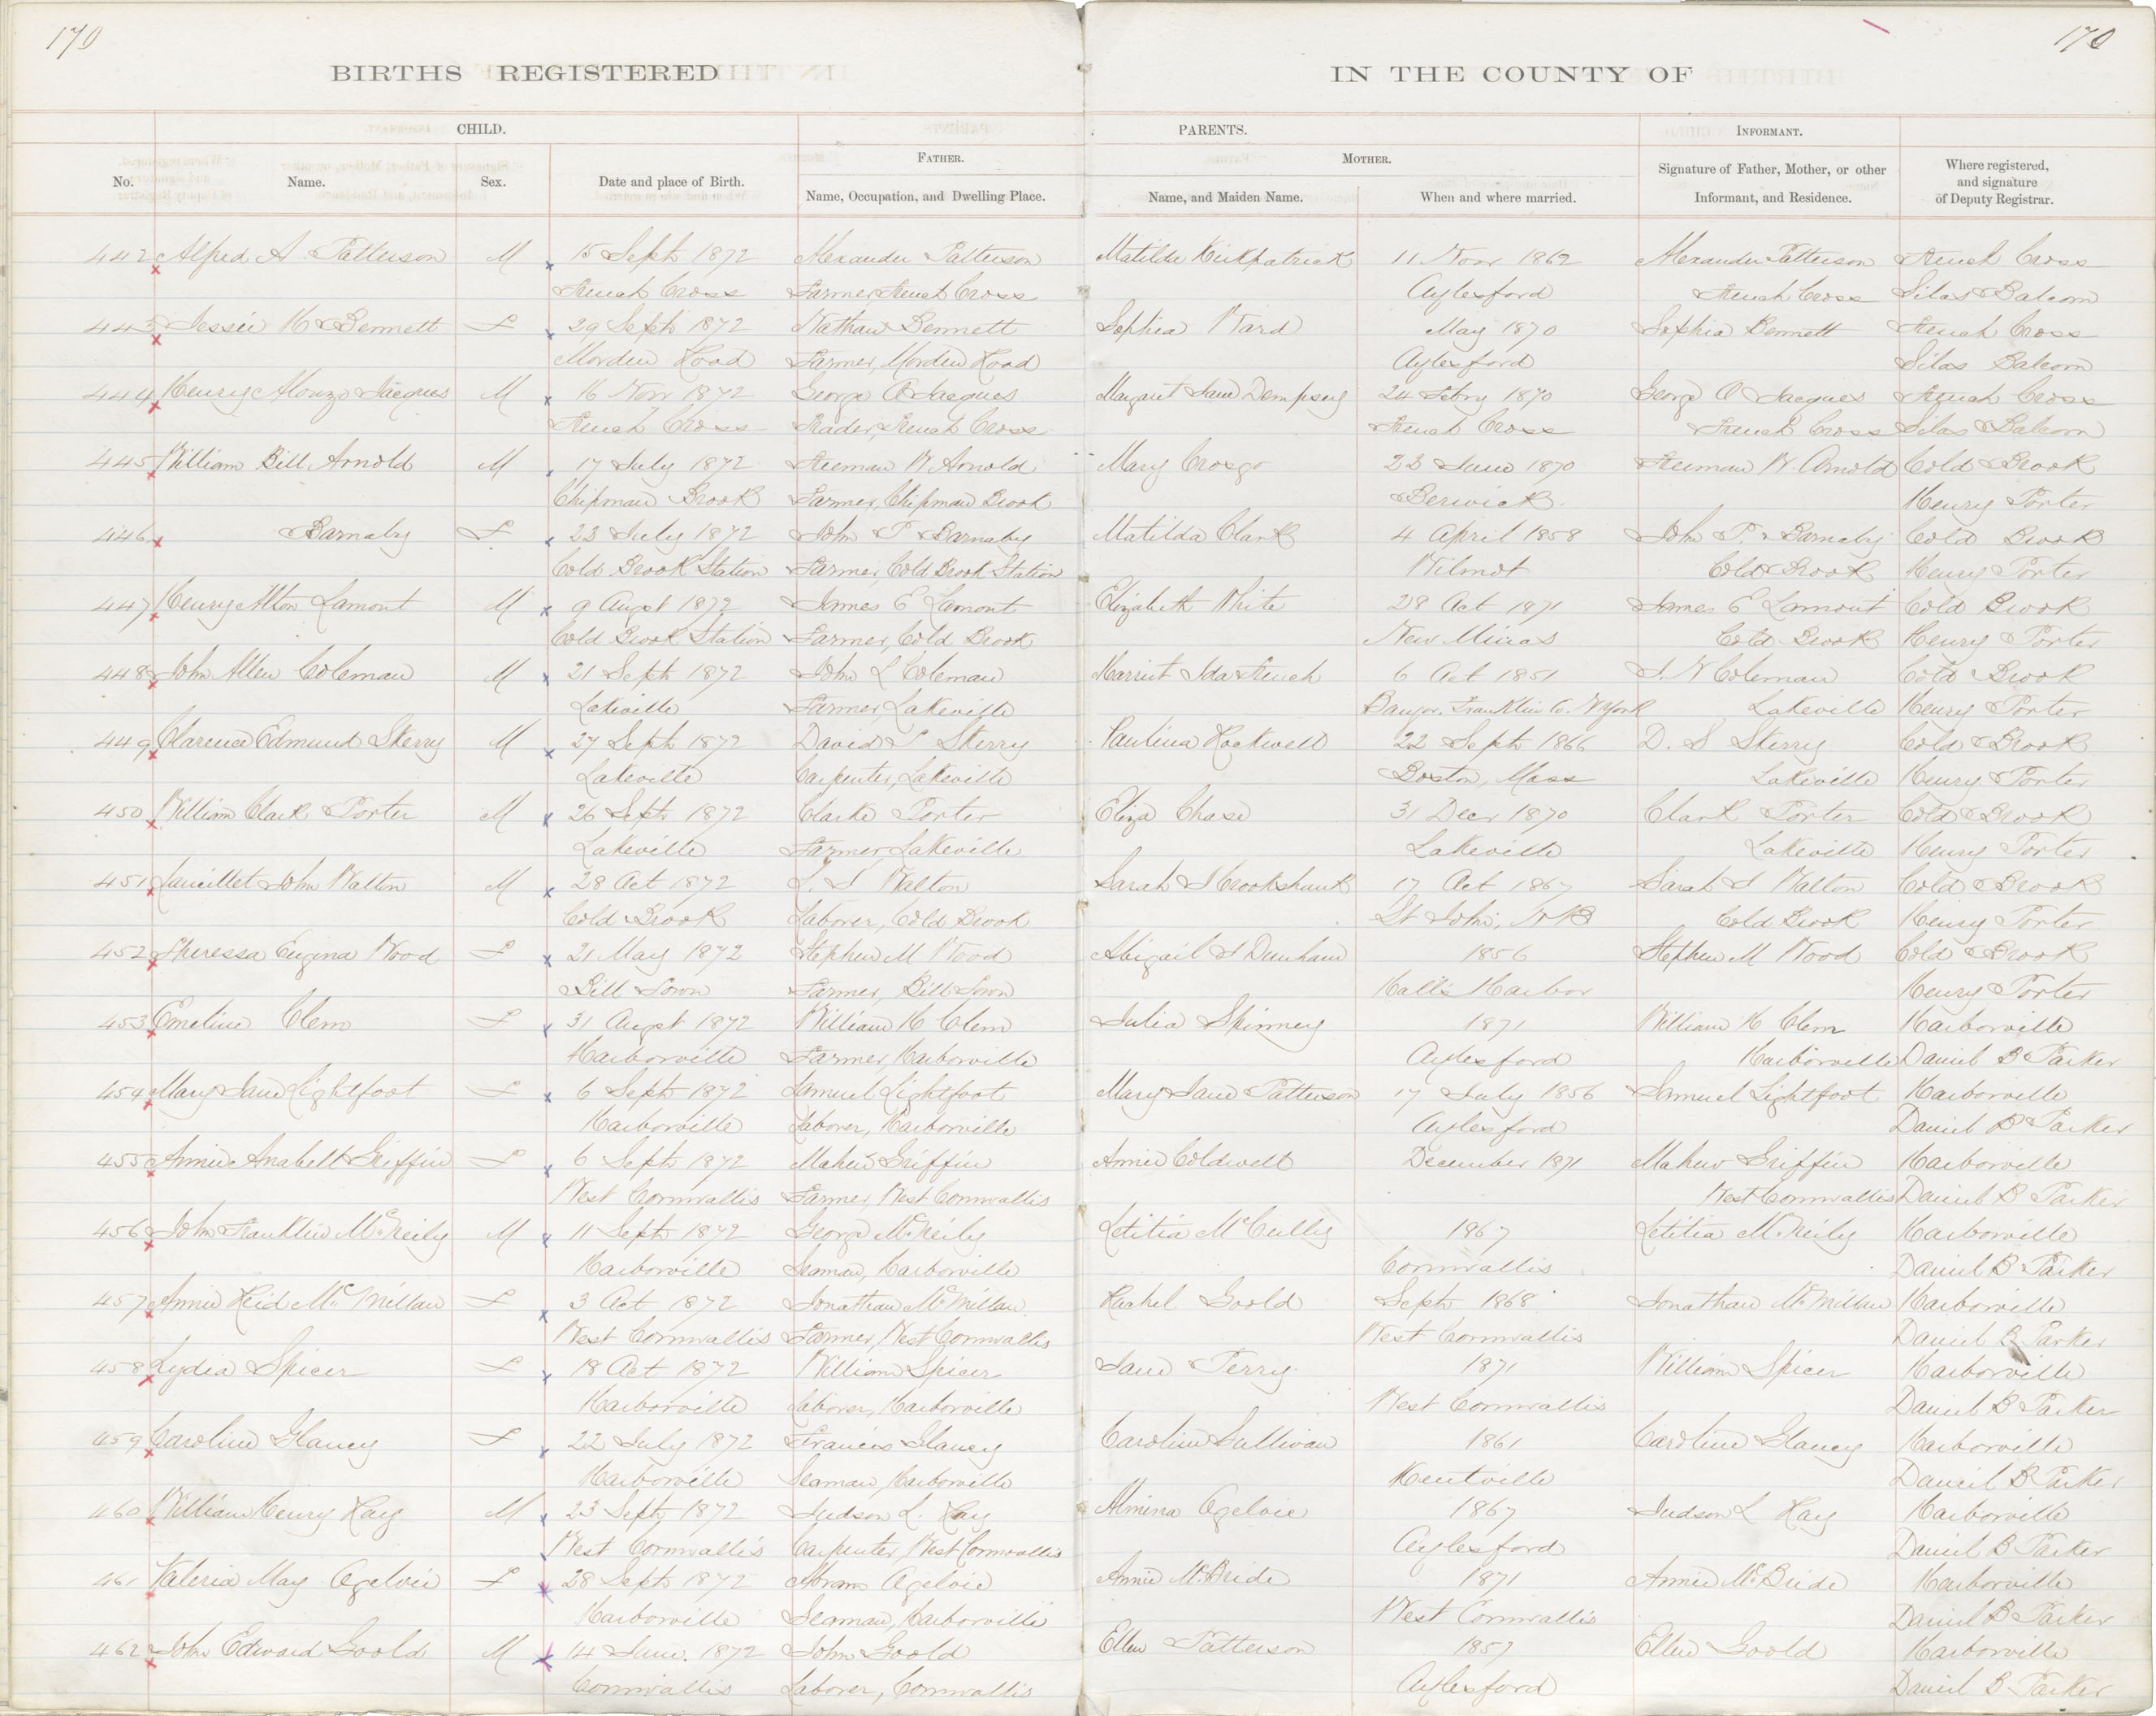 170
170
BIRTHS REGISTERED
IN THE COUNTY OF
CHILD.
PARENTS.
INFORMANT.
FATHER.
MOTHER.
No.
Name.
Sex.
Date and place of Birth.
Name, Occupation, and Dwelling Place.
Name, and Maiden Name.
When and where married.
Signature of Father, Mother, or other
Informant, and Residence.
Where registered,
and signature
of Deputy Registrar.
442 Alfred A. Patterson M 15 Sept 1872 Alexander Patterson Matilda Kirkpatrick 11 Novr 1862 Alexander Patterson French Cross
French Cross Farmer, French Cross Aylesford French Cross Silas Balcom
443 Jessie H Bennett F 29 Sept 1872 Nathan Bennett Sophia Ward May 1870 Sophia Bennett French Cross
Morden Road Farmer, Morden Road Aylesford Silas Balcom
444 Henry Alonzo Jacques M 16 Novr 1872 George O Jacques Margaret Jane Dempsey 24 Febry 1870 George O Jacques French Cross
French Cross Trader, French Cross French Cross French Cross Silas Balcom
445 William Bill Arnold M 17 July 1872 Freeman W Arnold Mary 23 June 1870 Freeman W. Arnold Cold Brook
Chipman Brook Farmer, Chipman Brook Berwick. Henry Porter
446 Barnaby F 23 July 1872 John P Barnaby Matilda Clark 4 April 1858 John P. Barnaby Cold Brook
Cold Brook Station Farmer, Cold Brook Station Wilmot Cold Brook Henry Porter
447 Henry Alton Lamont M 9 Augst 1872 James E Lamont Elizabeth White 28 Oct 1871 James E Lamont Cold Brook
Cold Brook Station Farmer, Cold Brook New Minas Cold Brook Henry Porter
448 John Allen Coleman M 21 Sept 1872 John L Coleman Harriet Ida French 6 Oct 1851 Coleman Cold Brook
Lakeville Farmer, Lakeville Bangor. Franklin Co. N York Lakeville Henry Porter
449 Clarence Edmund Skerry M 27 Sept 1872 David S Skerry Paulina Rockwell 22 Sept 1866 D. S Skerry Cold Brook
Lakeville Carpenter, Lakeville Boston, Mass Lakeville Henry Porter
450 William Clark Porter M 26 Sept 1872 Clarke Porter Eliza Chase 31 Decr 1870 Clark Porter Cold Brook
Lakeville Farmer, Lakeville Lakeville Lakeville Henry Porter
451 John Walton M 28 Oct 1872 Walton Sarah J Crookshank 17 Oct 1867 Sarah J Walton Cold Brook
Cold Brook Laborer, Cold Brook St John, N B Cold Brook Henry Porter
452 Theressa Eugina Wood F 21 May 1872 Stephen M Wood Abigail Dunham 1856 Stephen M Wood Cold Brook
Bill Town Farmer, Bill Town Halls Harbor Henry Porter
453 Emeline Clem F 31 Augst 1872 William H Clem Julia Spinney 1871 William H Clem Harborville
Harborville Farmer, Harborville Aylesford Harborville Daniel B Parker
454 Mary Jane Lightfoot F 6 Sept 1872 Samuel Lightfoot Mary Jane Patterson 17 July 1856 Samuel Lightfoot Harborville
Harborville Laborer, Harborville Aylesford Daniel B Parker
455 Annie Anabell Griffin F 6 Sept 1872 Mahew Griffin Annie Coldwell December 1871 Mahew Griffin Harborville
West Cornwallis Farmer, West Cornwallis West Cornwallis Daniel B Parker
456 John Franklin McNeily M 11 Sept 1872 George McNeily Letitia McCully 1867 Letitia McNeily Harborville
Harborville Seaman, Harborville Cornwallis Daniel B Parker
457 Annie Reid McMillan F 3 Oct 1872 Jonathan McMillan Rachel Goold Sept 1868 Jonathan McMillan Harborville
West Cornwallis Farmer, West Cornwallis West Cornwallis Daniel B Parker
458 Lydia Spicer F 18 Oct 1872 William Spicer Jane Terry 1871 William Spicer Harborville
Harborville Laborer, Harborville West Cornwallis Daniel B Parker
459 Caroline Glancy F 22 July 1872 Francis Glancy Caroline Sullivan 1861 Caroline Glancy Harborville
Harborville Seaman, Harborville Kentville Daniel B Parker
460 William Henry Ray M 23 Sept 1872 Judson L. Ray Almina Ogelvie 1867 Judson L Ray Harborville
West Cornwallis Carpenter, West Cornwallis Aylesford Daniel B Parker
461 Valeria May Ogelvie F 28 Sept 1872 Abram Ogelvie Annie McBride 1871 Annie McBride Harborville
Harborville Seaman, Harborville West Cornwallis Daniel B Parker
462 John Edward Goold M 14 June. 1872 John Goold Ellen Patterson 1857 Ellen Goold Harborville
Cornwallis Laborer, Cornwallis Aylesford Daniel B Parker